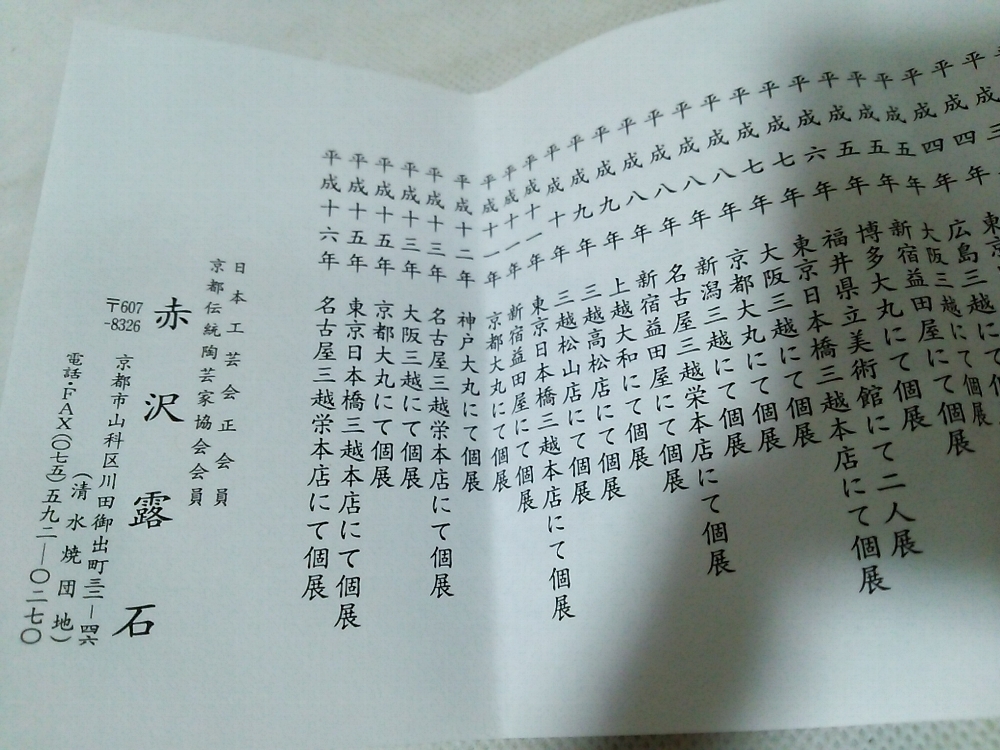 平成四年 広島三越にて個展
平成五年 大阪三越にて個展
平成五年 新宿益田屋にて個展
平成五年 博多大丸にて個展
平成六年 福井県立美術館にて二人展
平成七年 東京日本橋三越本店にて個展
平成七年 大阪三越にて個展
平成八年 京都大丸にて個展
平成八年 新潟三越にて個展
平成八年 名古屋三越栄本店にて個展
平成八年 新宿益田屋にて個展
平成九年 上越大和にて個展
平成九年 三越高松店にて個展
平成十年 三越松山店にて個展
平成十一年 東京日本橋三越本店にて個展
平成十一年 新宿益田屋にて個展
平成十一年 京都大丸にて個展
平成十二年 神戸大丸にて個展
平成十三年 名古屋三越栄本店にて個展
平成十三年 大阪三越にて個展
平成十五年 京都大丸にて個展
平成十五年 東京日本橋三越本店にて個展
平成十六年 名古屋三越栄本店にて個展
日本工芸会正会員
京都伝統陶芸家協会会員
赤沢露石
〒607-8326 京都市山科区川田御出町三三―四六
（清水焼団地）
電話・FAX（〇七五）五九二―〇二七〇